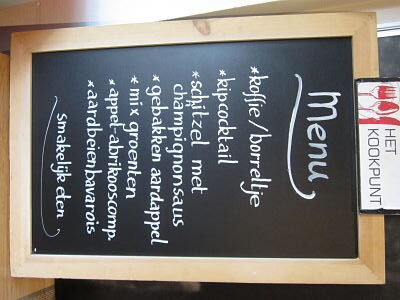 Menu
*koffie/borreltje
*kipcocktail
*schitzel met
champignonsaus
*gebakken aardappel
*mix groenten
*appel-abrikooscomp.
*aardbeienbavarois
smakelijk eten
HET
KOOKPUNT